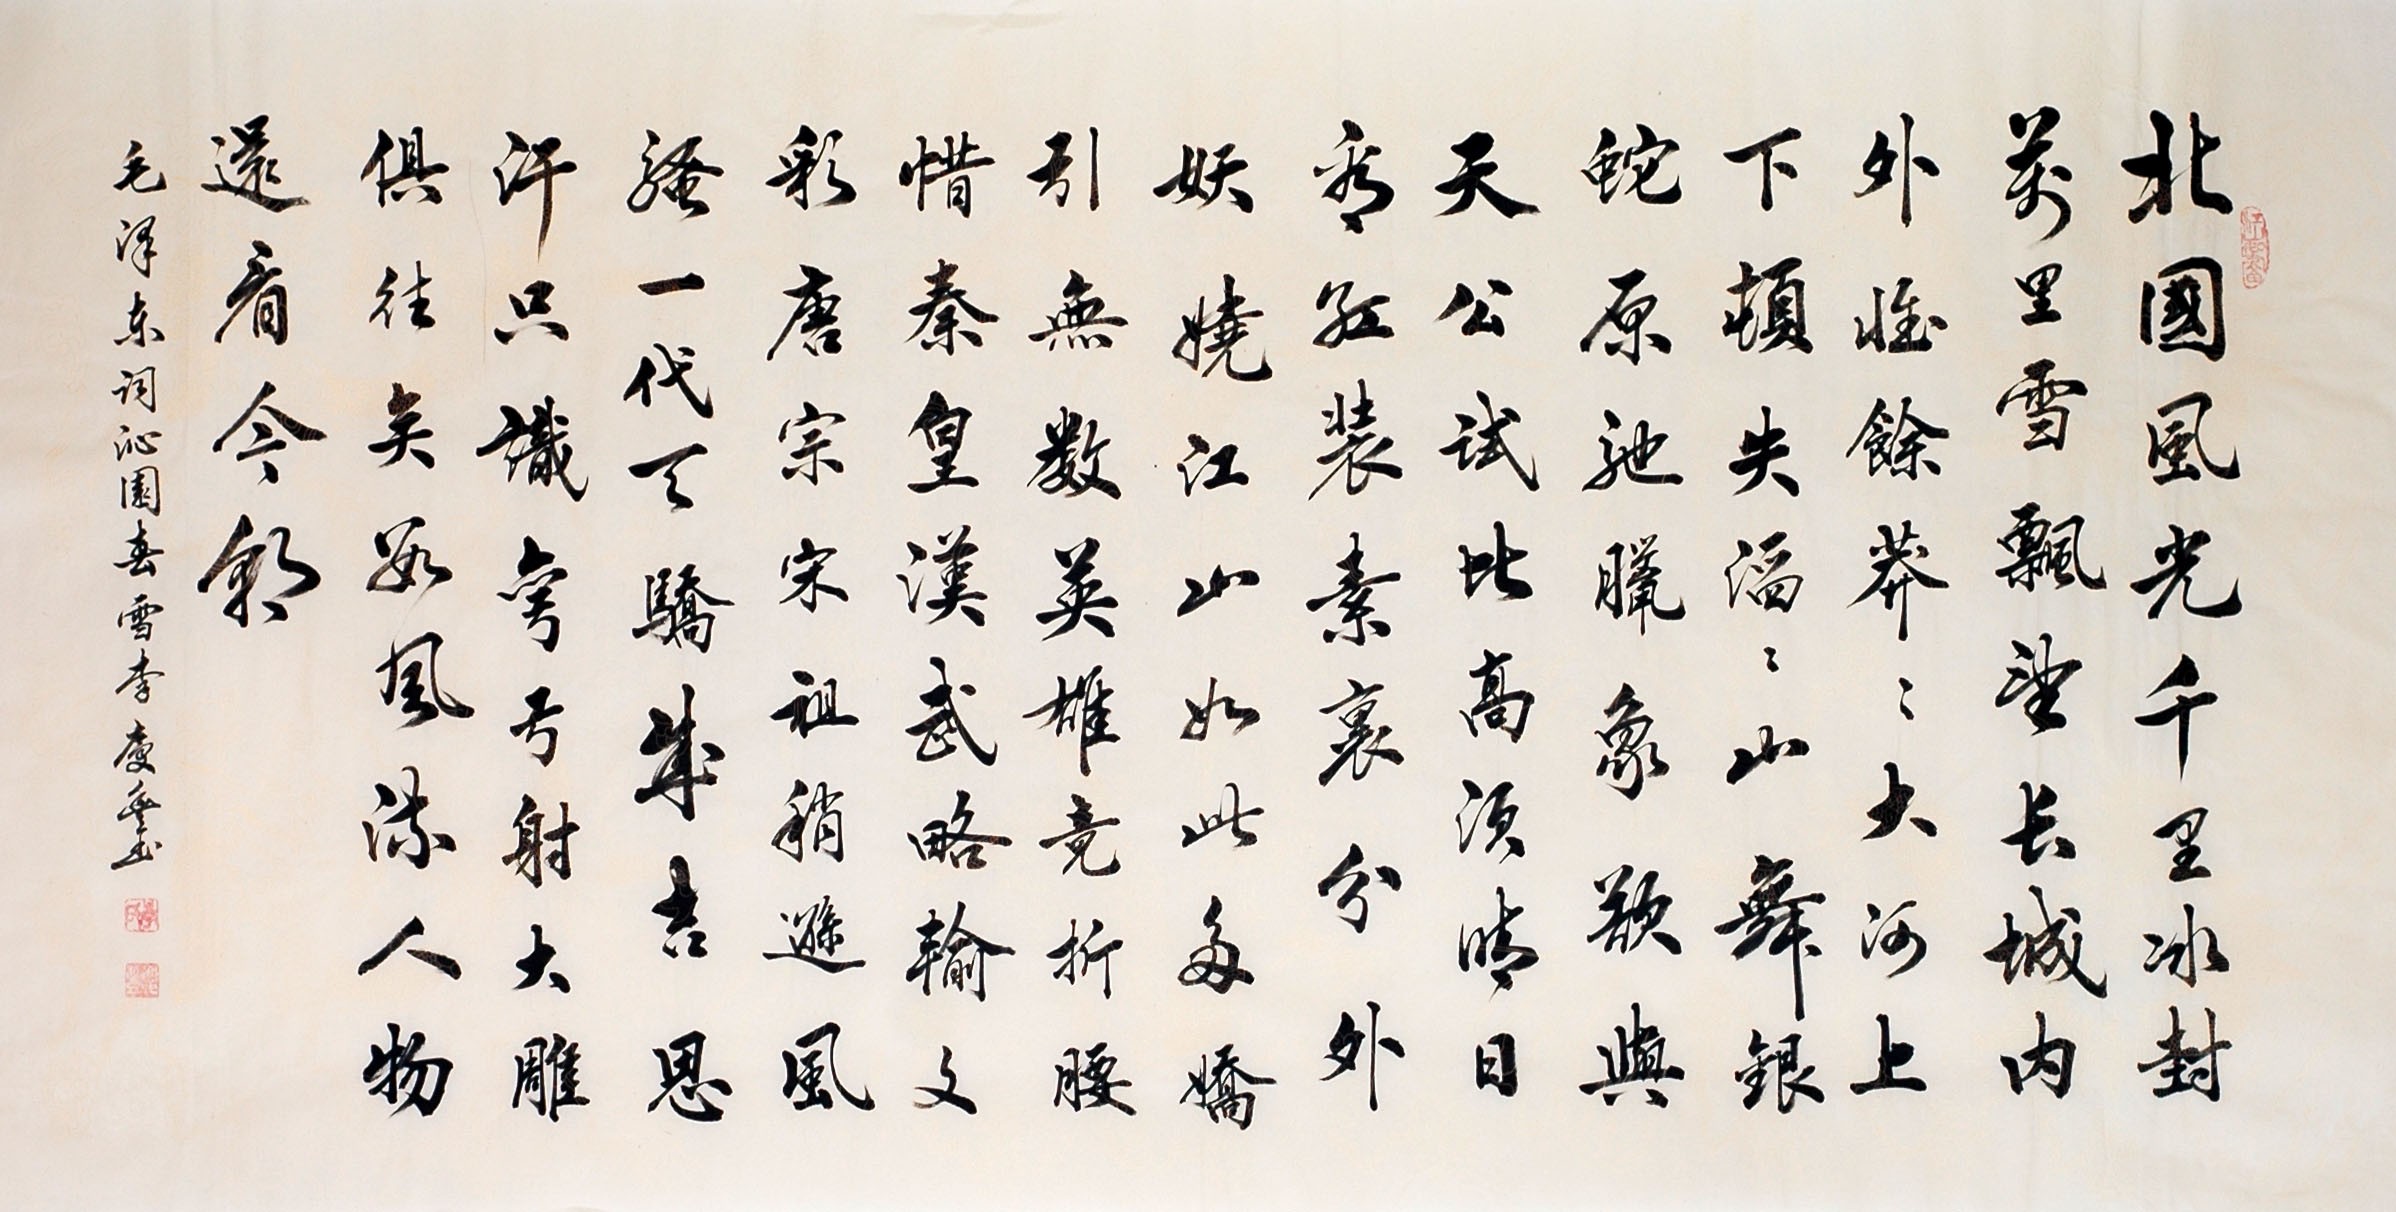 北國風光千里冰封
萬里雪飄望长城内
外惟餘莽〻大河上
下頓失滔〻山舞銀
蛇原馳臘象欲與
天公試比高須晴日
看红装素裹分外
妖嬈江山如此多嬌
引無数英雄竞折腰
惜秦皇漢武略輸文
彩唐宗宋祖稍遜風
骚一代天驕成吉思
汗只識弯弓射大雕
俱往矣数风流人物
還看今朝
毛泽东词沁園春雪李慶